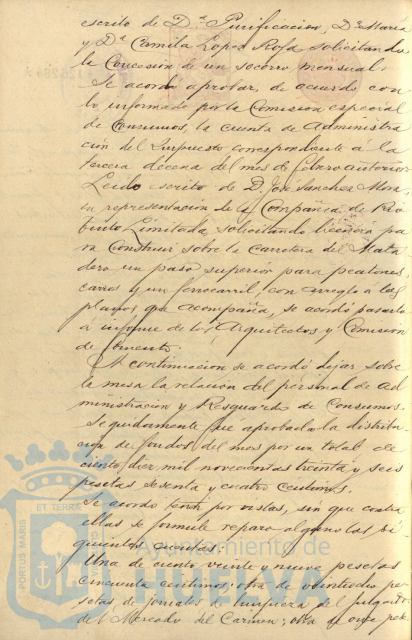 escrito de D.ª Purificacion, D.ª Maria
y D.ª Camila Lopez Rofa solicitando
la Concesión de un socorro mensual.
Se acordó aprobar, de acuerdo con
lo informado por la Comision especial
de Consumos, la cuenta de Administra
cion del Impuesto correspondiente á la
tercera decena del mes de febrero anterior.
Leido escrito de D. José Sanchez Mora,
en representación de la Compañia de Rio
tinto Limitada, solicitando licencia pa
ra Construir sobre la Carretera del Mata
dero un paso superior para peatones,
carros y un ferrocarril, con arreglo a los
planos que acompaña, se acordó pasarlo
á informe de los Arquitectos y Comision
de fomento.
A continuacion se acordó dejar sobre
la mesa la relacion del personal de Ad
ministracion y Resguardo de Consumos.
Seguidamente fue aprobada la distribu
cion de fondos del mes por un total de
ciento diez mil novecientas treinta y seis
pesetas sesenta y cuatro centimos.
Se acordó tener por vistas, sin que contra
ellas se formule reparo alguno las si
guientes cuentas:
Una de ciento veinte y nueve pesetas
cincuenta centimos: otra de veintiocho pe
setas de jornales de limpieza del
del Mercado del Carmen; otra de once pese
PORTUS MARIS
ET TERRÆ
Ayuntamiento de
HUELVA